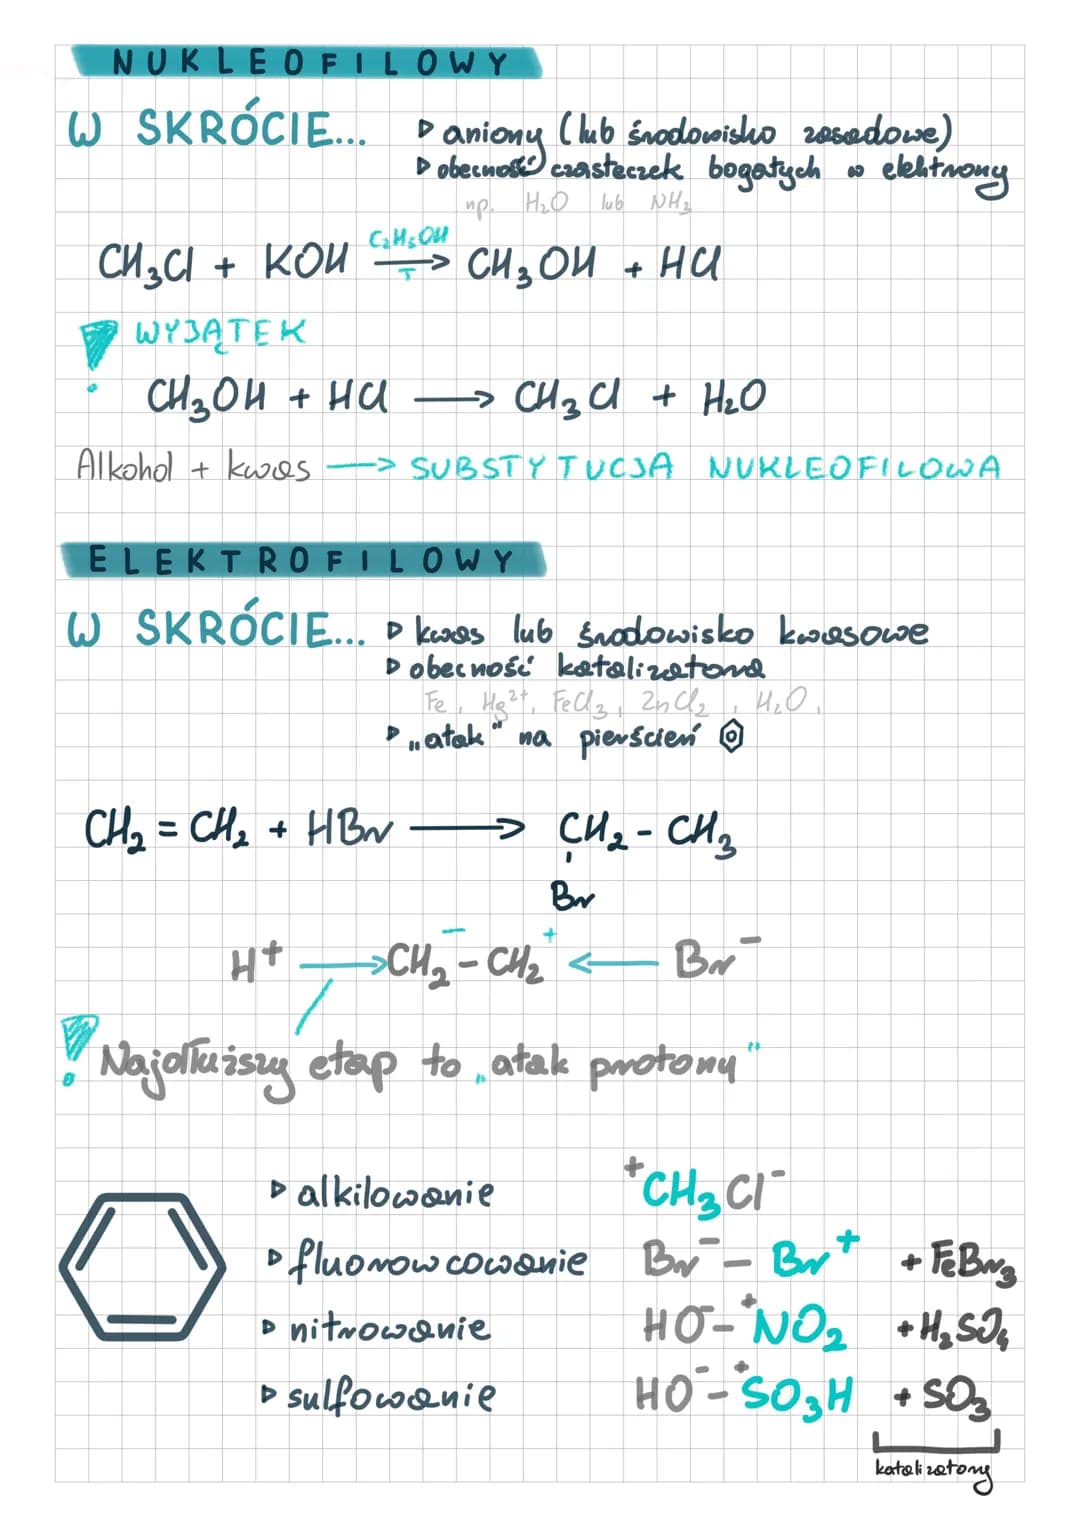 NUKLEOFILOWY
W SKRÓCIE... ▷ aniony (lub środowisko zasadowe)
▷ obecność cząsteczek bogatych w elektrony
np. H₂O lub NH₃
CH₃Cl + KOH C₂H₅OH/T → CH₃OH + HCl
! WYJĄTEK
CH₃OH + HCl → CH₃Cl + H₂O
Alkohol + kwas → SUBSTYTUCJA NUKLEOFILOWA
ELEKTROFILOWY
W SKRÓCIE... ▷ kwas lub środowisko kwasowe
▷ obecność katalizatora
Fe, Hg²⁺, FeCl₃, ZnCl₂, H₂O,
▷ „atak" na pierścień
CH₂ = CH₂ + HBr → CH₂ - CH₃
Br
H⁺ → CH₂⁻ - CH₂⁺ ← Br⁻
! Najdłuższy etap to „atak protony"
▷ alkilowanie ⁺CH₃Cl⁻
▷ fluorowcowanie Br⁻ - Br⁺ + FeBr₃
▷ nitrowanie HO⁻ - ⁺NO₂ + H₂SO₄
▷ sulfowanie HO⁻ - ⁺SO₃H + SO₃
katalizatory